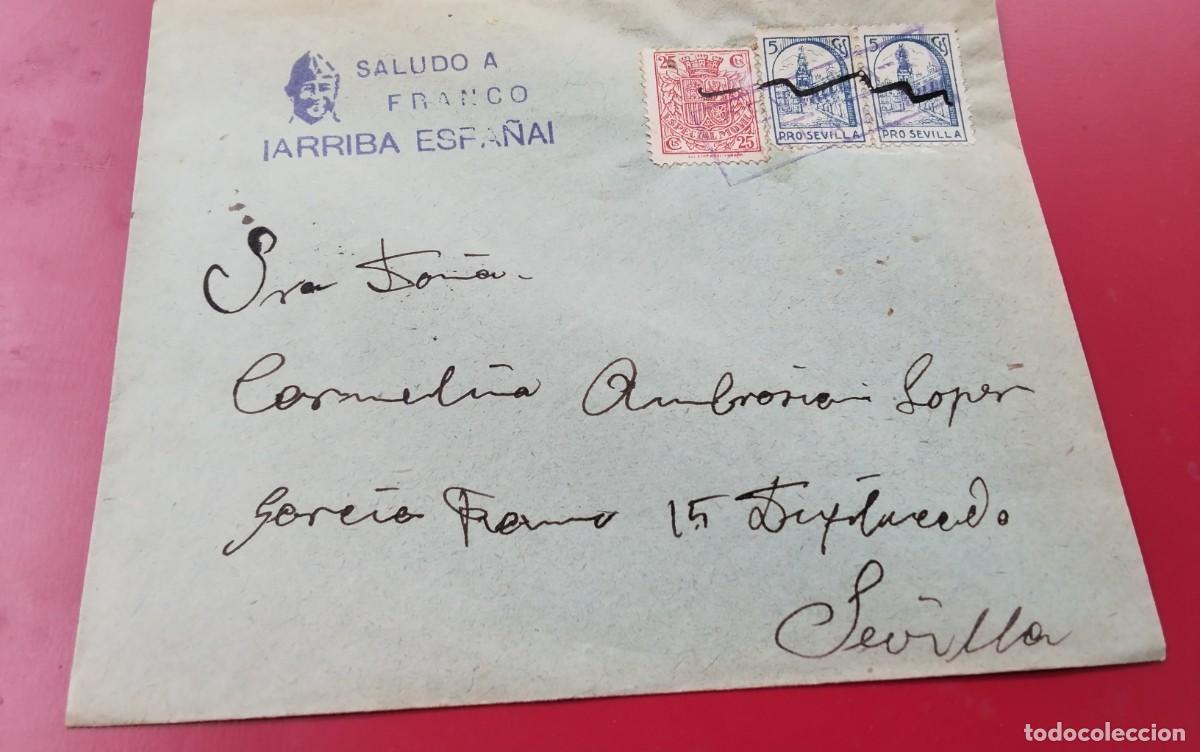 SALUDO A
FRANCO
¡ARRIBA ESPAÑA!
25 Cts
ESPECIAL MOVIL
Cts 25
5 Cts
PRO SEVILLA
5 Cts
PRO SEVILLA
Sra Doña.
Carmelina Ambrosiani Lopez
Garcia Ramo 15
Sevilla
todocoleccion